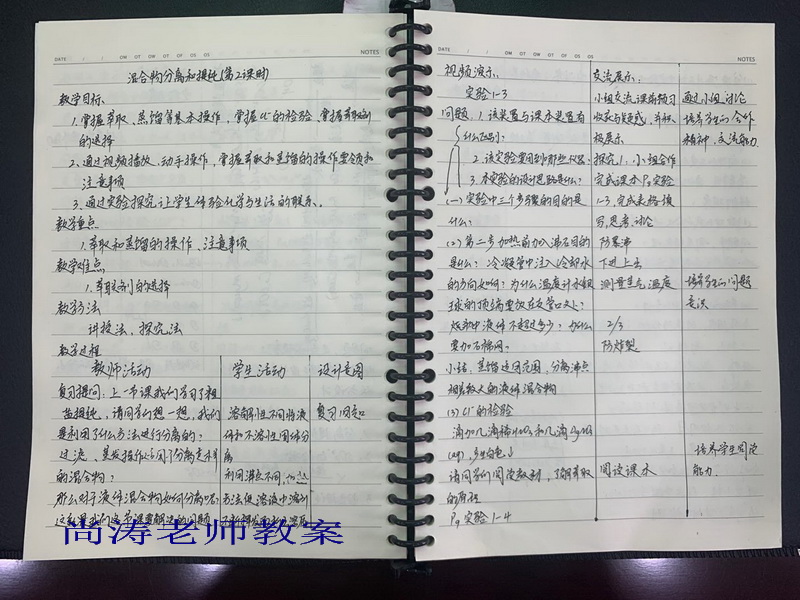 DATE / / OM OT OW OT OF OS OS NOTES
混合物分离和提纯(第2课时)
教学目标
1.掌握萃取、蒸馏等基本操作,掌握Cl⁻的检验、掌握萃取剂
的选择
2.通过视频播放、动手操作,掌握萃取和蒸馏的操作要领和
注意事项
3.通过实验探究让学生体验化学与生活的联系。
教学重点
1.萃取和蒸馏的操作、注意事项
教学难点
1.萃取剂的选择
教学方法
讲授法,探究法
教学过程
教师活动 学生活动 设计意图
复习提问:上一节课我们学习了粗
盐提纯,请同学们想一想,我们
是利用了什么方法进行分离的?
过滤、蒸发操作
的混合物?
那么对于液体混合物如何分离呢?
这就是我们这节课要解决的问题
溶解性不同将液
体和不溶性固体分
离
利用沸点不同
复习旧知
DATE / / OM OT OW OT OF OS OS NOTES
视频演示:
实验1-3
问题 1.该装置与课本装置有
什么区别?
2.该实验要用到哪些仪器?
3.本实验的设计思路是什么?
(一)实验中三个步骤的目的是
什么?
(2)第二步加热前加入沸石目的
是什么?冷凝管中注入冷却水
的方向如何?为什么温度计水银
球的顶端要放在支管口处?
烧瓶中液体不超过多少?为什么
要加石棉网。
小结:蒸馏适用范围,分离沸点
相差较大的液体混合物
(3)Cl⁻的检验
滴加几滴稀HNO₃和几滴AgNO₃
请同学们阅读教材,了解萃取
的原理
P₉实验1-4
交流展示:
小组交流课前预习
收获与疑惑,并积
极展示
探究1:小组合作
完成课本P₈实验
1-3,完成表格填
写,思考、讨论
防暴沸
下进上出
测量蒸气温度
2/3
防炸裂
阅读课本
通过小组讨论
培养学生的合作
精神,交流能力
培养学生的问题
意识
培养学生阅读
能力.
尚涛老师教案